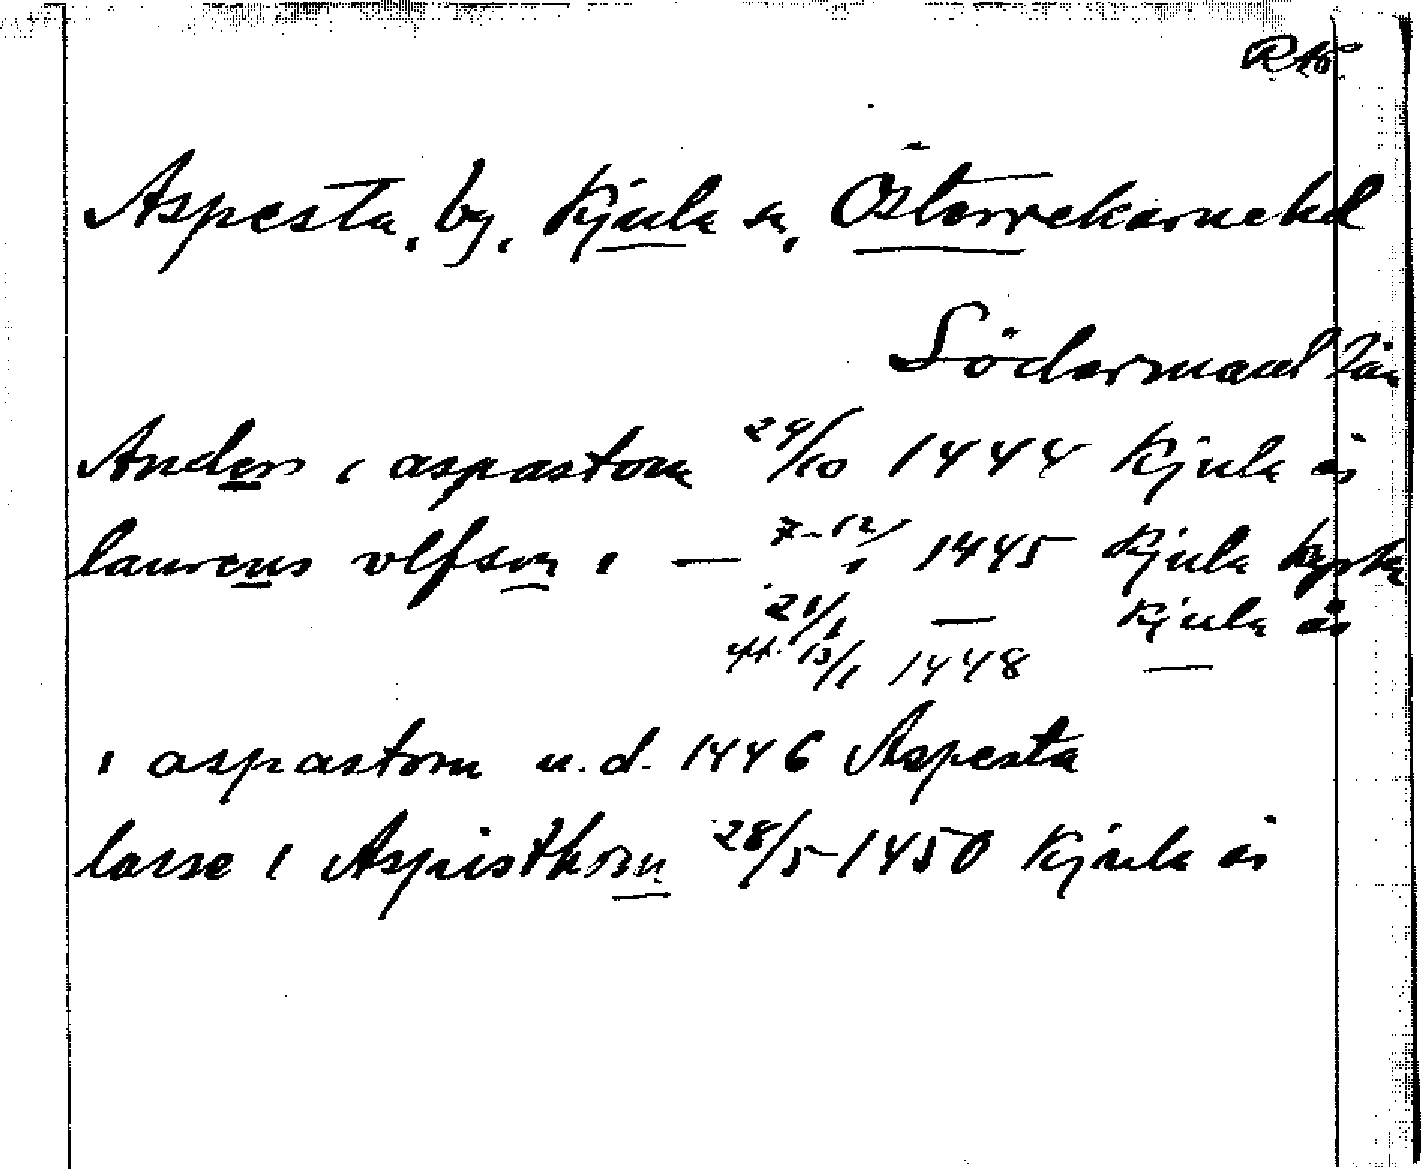 RAO
Aspesta, by, Kjula sn, Österrekarnehd
Södermanl län
Anders i aspastom 29/10 1444 Kjula ås
laurens vlfson i — 7-12/1 1445 Kjula kyrka
21/1 — Kjula ås
13/1 1448 —
i aspastom u.d. 1446 Aspesta
lasse i Aspisthom 28/5 1450 Kjula ås